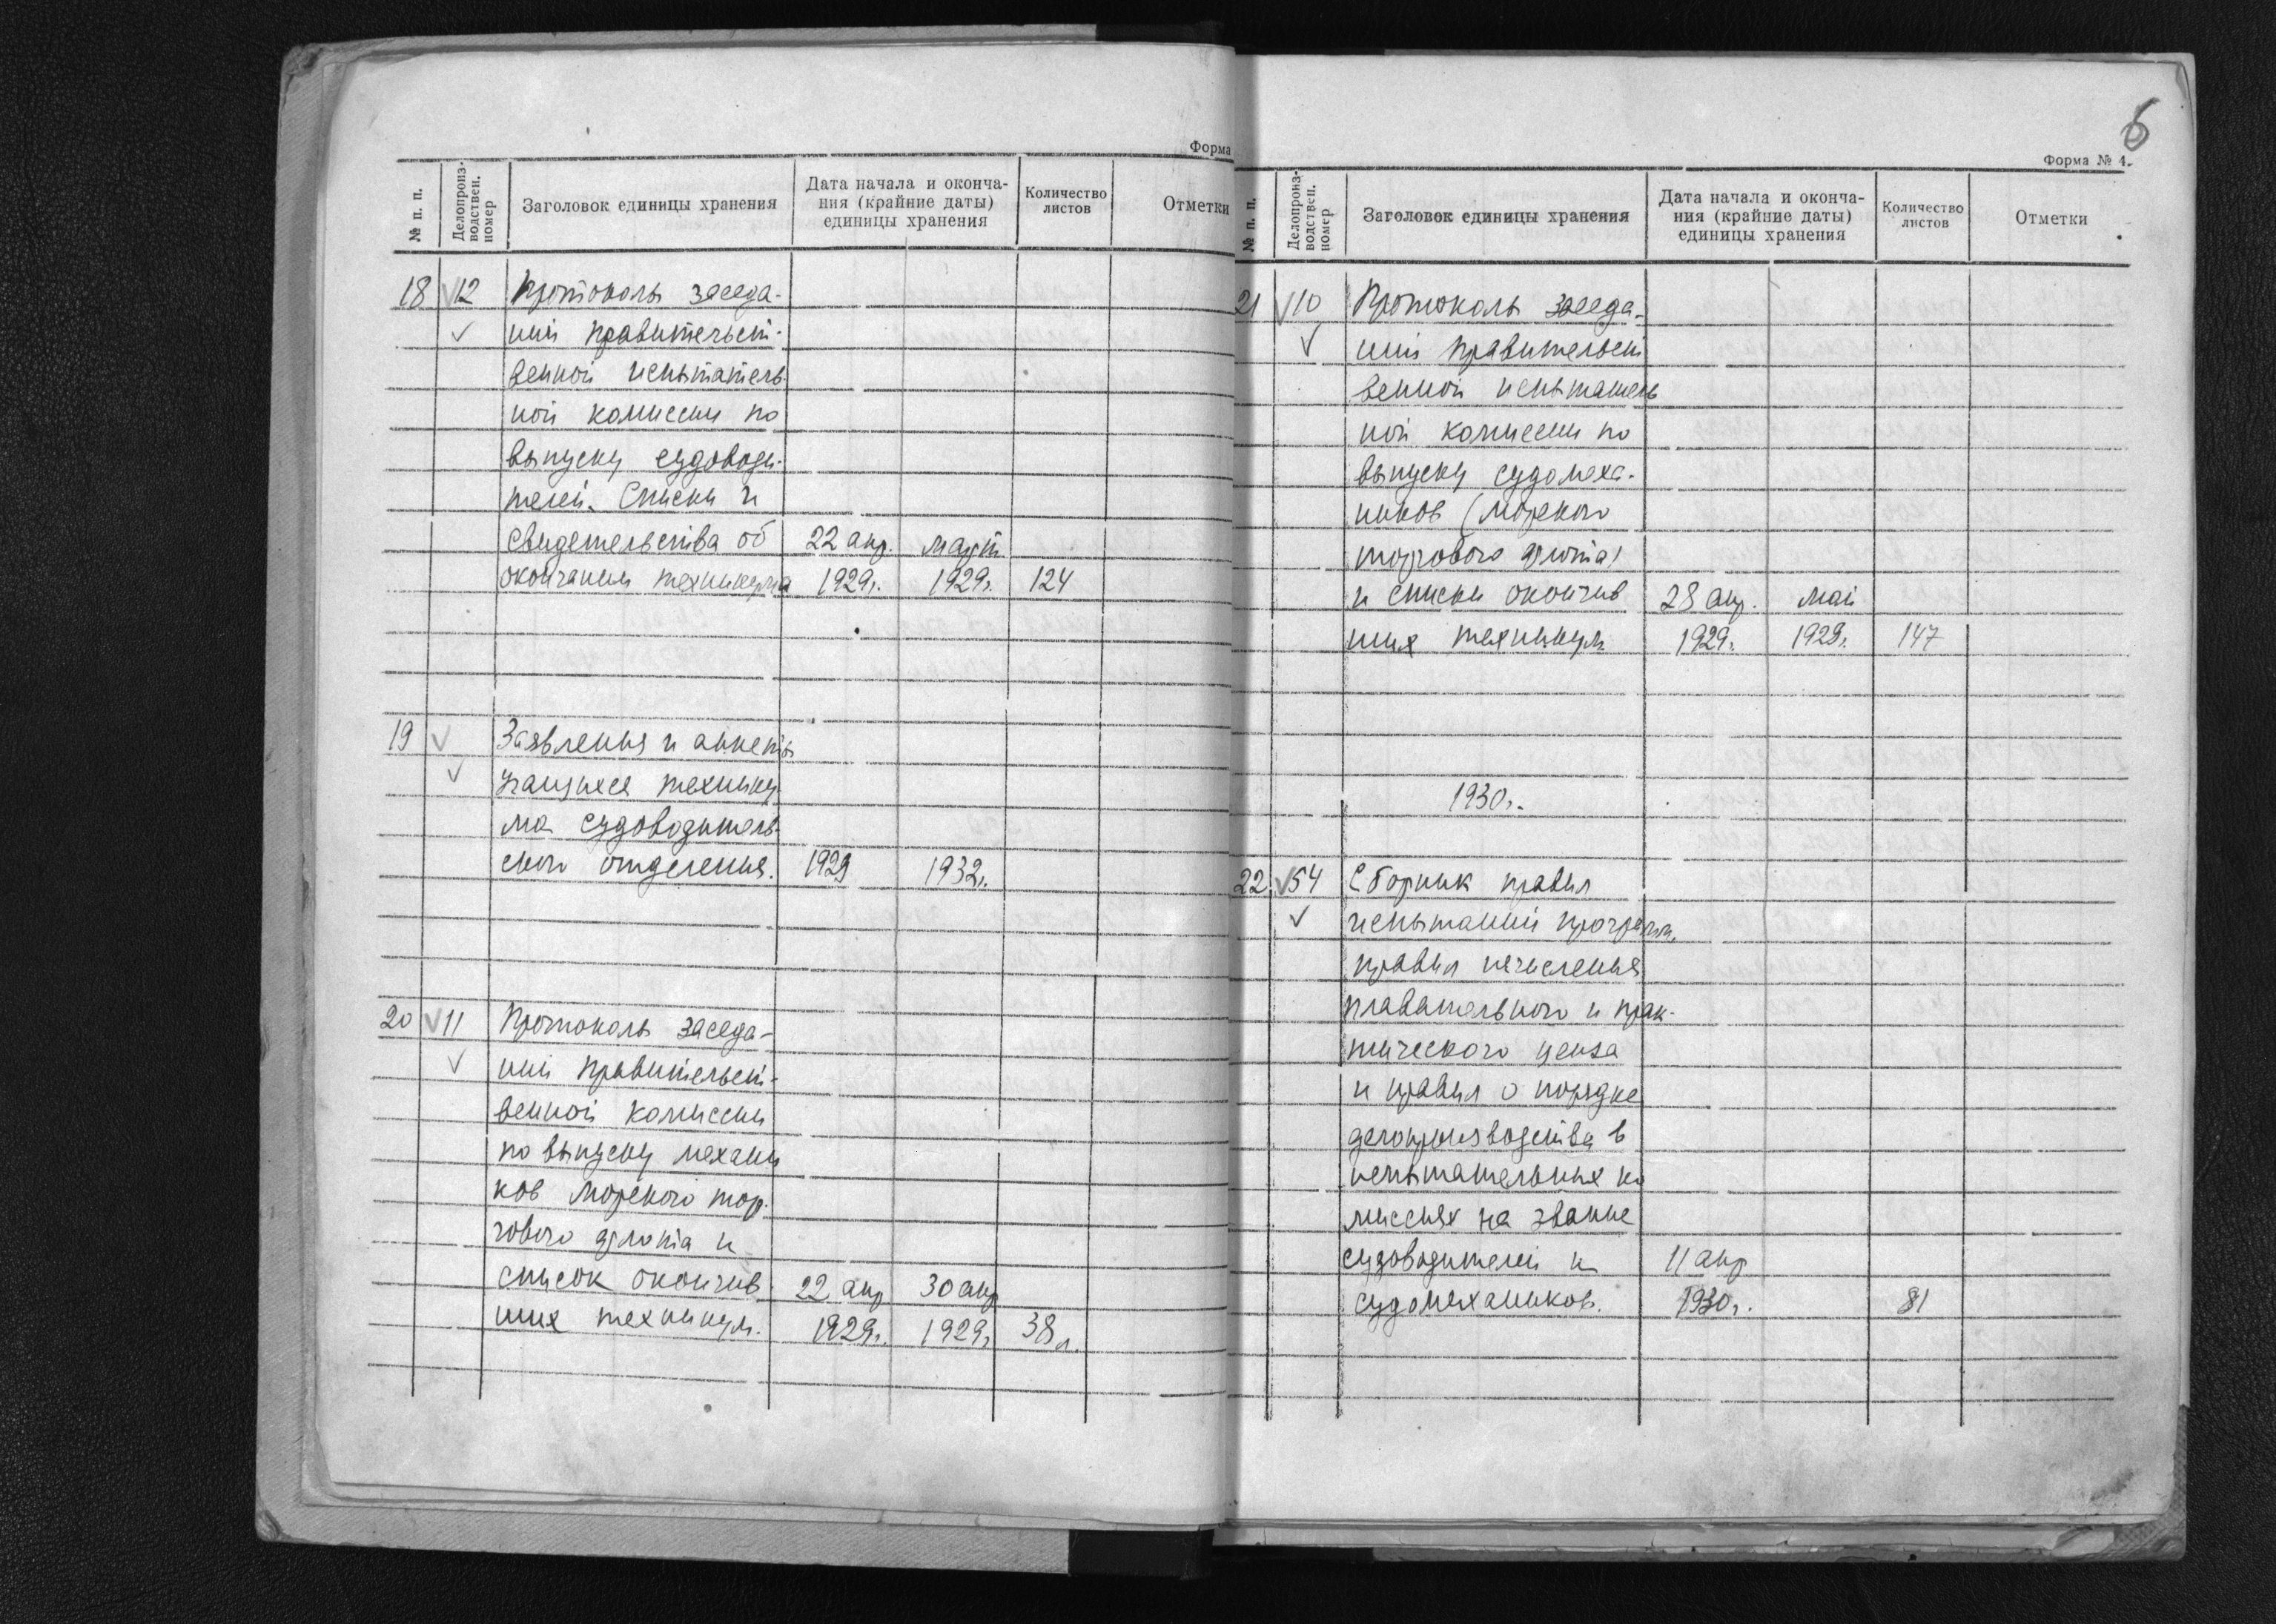 Форма
№ п. п.
Делопроиз-
водствен.
номер
Заголовок единицы хранения
Дата начала и оконча-
ния (крайние даты)
единицы хранения
Количество
листов
Отметки
18 12 Протоколы заседа-
ний правительст-
венной испытатель-
ной комиссии по
выпуску судоводи-
телей. Списки и
свидетельства об 22 апр. март
окончании техникума 1929г. 1929г. 124
19 Заявления и анкеты
учащихся технику-
ма судоводитель-
ского отделения. 1929 1932г.
20 11 Протоколы заседа-
ний правительст-
венной комиссии
по выпуску механи
ков морского тор-
гового флота и
список окончив- 22 апр 30 апр
ших техникум. 1929г. 1929г. 38 л.
6
Форма № 4.
№ п. п.
Делопроиз-
водствен.
номер
Заголовок единицы хранения
Дата начала и оконча-
ния (крайние даты)
единицы хранения
Количество
листов
Отметки
21 10 Протоколы заседа-
ний правительст
венной испытатель
ной комиссии по
выпуску судомеха-
ников (морского
торгового флота)
и списки окончив 28 апр. май
ших техникум 1929г. 1929г. 147
1930г.
22 54 Сборник правил
испытаний программ,
правил исчисления
плавательного и прак-
тического ценза
и правил о порядке
делопроизводства в
испытательных ко
миссиях на звание
судоводителей и 11 апр
судомехаников. 1930г. 81